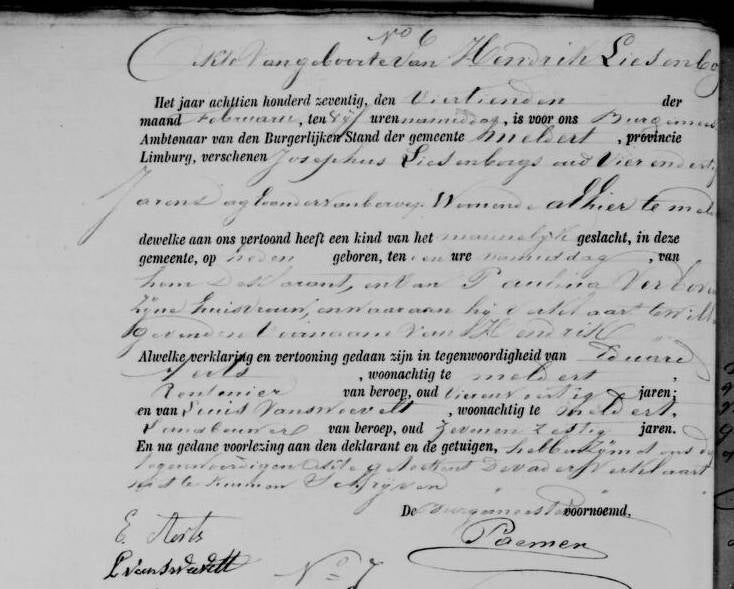 No 6
Akte Van geboorte Van Hendrik Liesenbo
Het jaar achttien honderd zeventig, den Viertienden der
maand Februarii, ten uren namiddag, is voor ons Burgemees
Ambtenaar van den Burgerlijken Stand der gemeente Meldert, provincie
Limburg, verschenen Josephus Liesenborgs oud Vier en dertig
Jaren dag Woonende alhier te mel
dewelke aan ons vertoond heeft een kind van het mannelijk geslacht, in deze
gemeente, op heden geboren, ten een ure namiddag, van
hem Deklarant, en Van Paulina Ver
zijne huisvrouw, en waaraan hij verklaart te wil
geven den Voornaam Van Hendrik
Alwelke verklaring en vertooning gedaan zijn in tegenwoordigheid van Edward
Aerts, woonachtig te meldert,
van beroep, oud Vier en veertig jaren;
en van Louis Vanswevelt, woonachtig te meldert,
Landbouwer van beroep, oud Zeven en Zestig jaren.
En na gedane voorlezing aan den deklarant en de getuigen, hebben zij met ons de
tegenwoordigen akte geteekent De vader verklaart
niet te kunnen Schrijven
De Burgemeester voornoemd.
E. Aerts
Paemen
L Vanswevelt
No 7